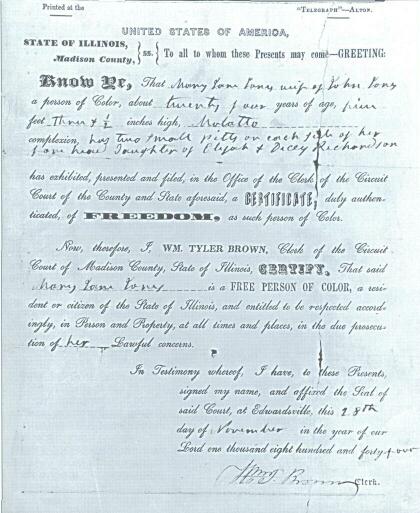 Printed at the "Telegraph"—Alton.
UNITED STATES OF AMERICA,
STATE OF ILLINOIS,
Madison County, } ss. To all to whom these Presents may come—GREETING:
Know Ye, That Mary Jane Jones wife of John Jones
a person of Color, about twenty four years of age, five
feet Three & ½ inches high, Molatto
complexion, has two small pitts on each side of her
fore head Daughter of Elijah & Dicey Richardson
has exhibited, presented and filed, in the Office of the Clerk of the Circuit
Court of the County and State aforesaid, a CERTIFICATE, duly authen-
ticated, of FREEDOM, as such person of Color.
Now, therefore, I, WM. TYLER BROWN, Clerk of the Circuit
Court of Madison County, State of Illinois, CERTIFY, That said
Mary Jane Jones is a FREE PERSON OF COLOR, a resi-
dent or citizen of the State of Illinois, and entitled to be respected accord-
ingly, in Person and Property, at all times and places, in the due prosecu-
tion of her Lawful concerns.
In Testimony whereof, I have, to these Presents,
signed my name, and affixed the Seal of
said Court, at Edwardsville, this 28th
day of November in the year of our
Lord one thousand eight hundred and forty four
Wm T. Brown Clerk.